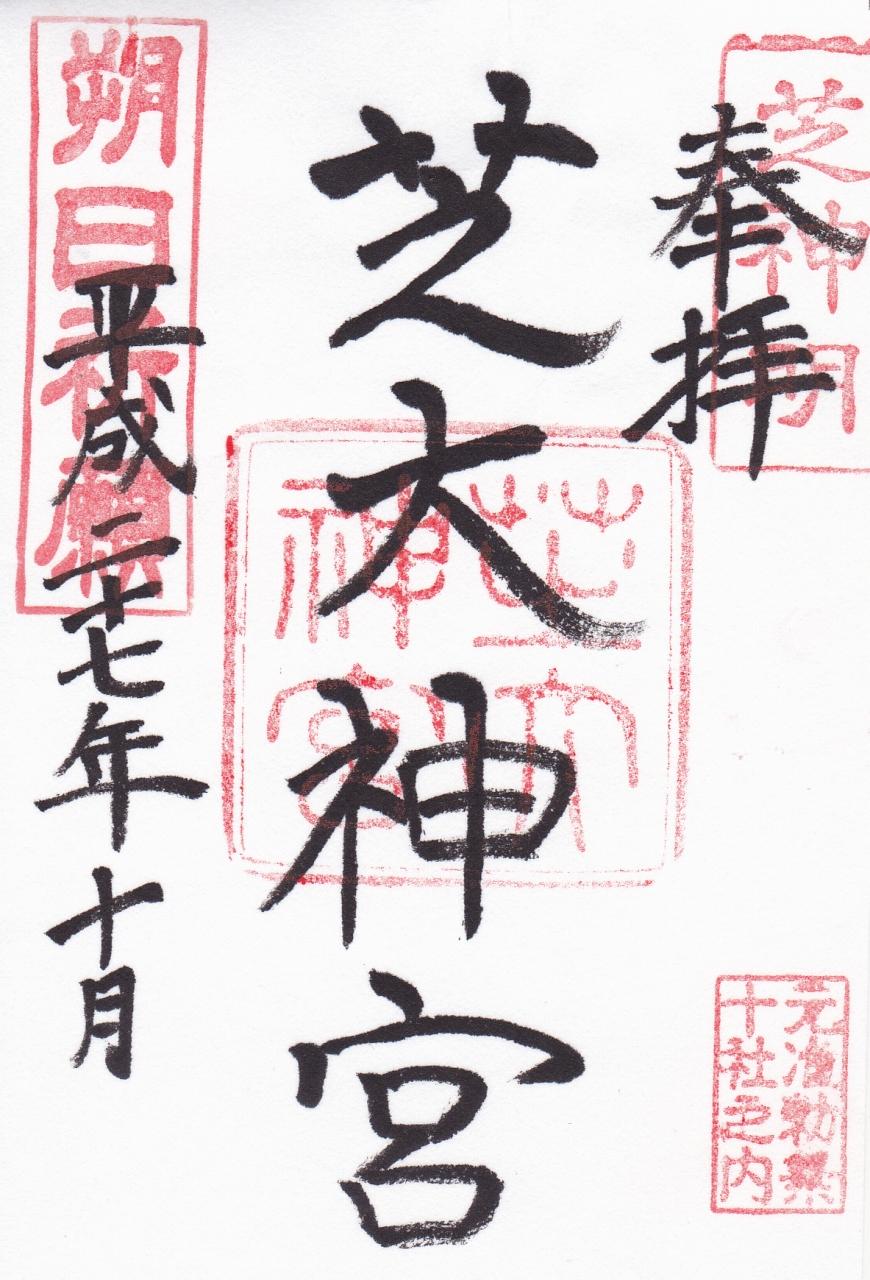 奉拝
芝神明
芝大神宮
芝大神宮
平成二十七年十月
朔日祈願
元准勅祭
十社之内